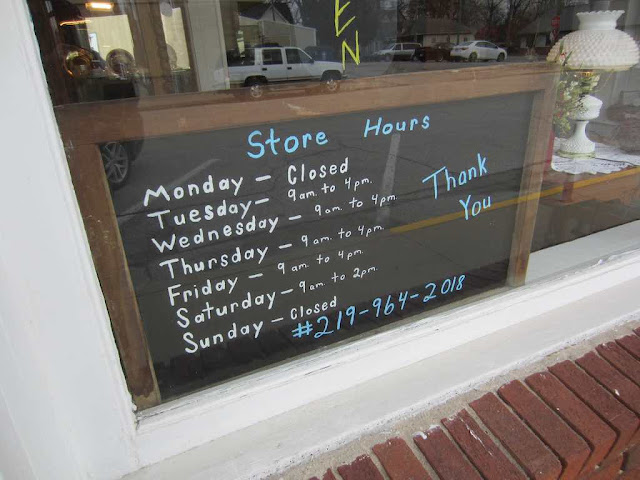 EN
Store Hours
Monday - Closed
Tuesday - 9am. to 4pm.
Wednesday - 9am. to 4pm
Thursday - 9am. to 4pm.
Friday - 9am. to 4pm.
Saturday - 9am. to 2pm.
Sunday - Closed
Thank
You
#219-964-2018